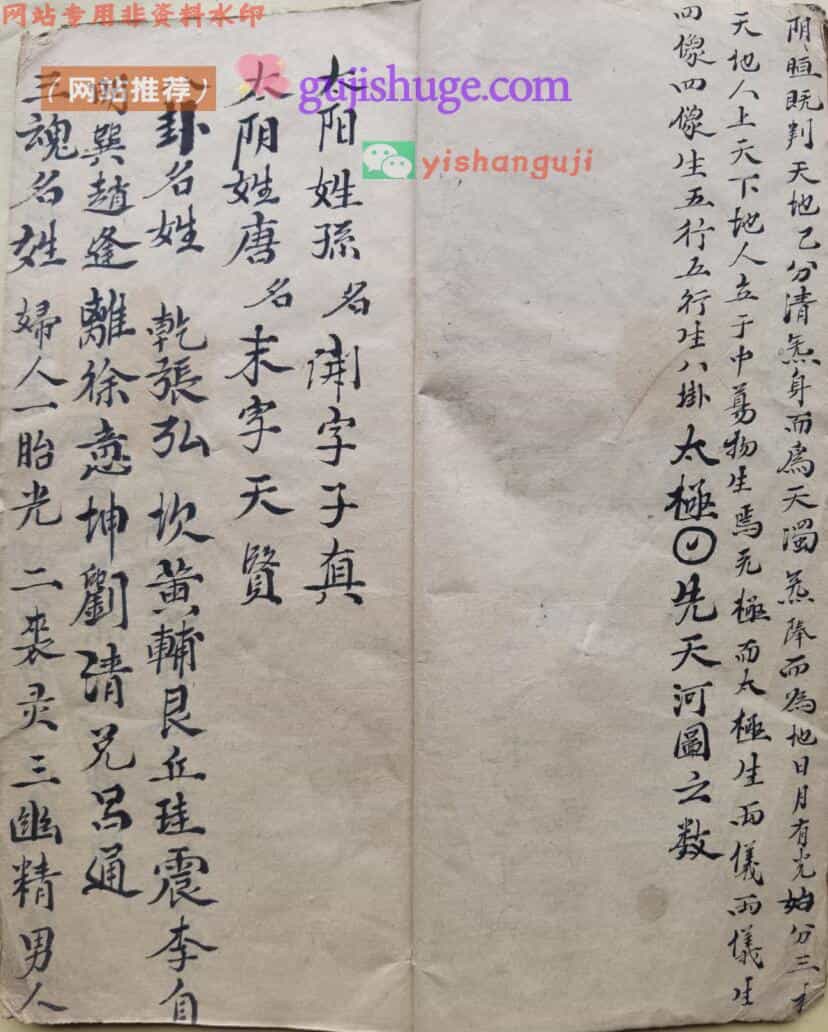 网站专用非资料水印
（网站推荐）
gujishuge.com
yishanguji
阴恒既判天地乙分清炁身而為天濁炁降而為地日月有光始分三才
天地人上天下地人立于中萬物生焉无極而太極生兩儀兩儀生
四像四像生五行五行生八掛太極先天河圖之数
太阳姓孫名開字子真
太阴姓唐名末字天賢
八卦名姓 乾張弘 坎黄輔艮丘珪震李自
明巽趙逢離徐意坤劉清兑吕通
三魂名姓 婦人一胎光 二裹灵三幽精男人